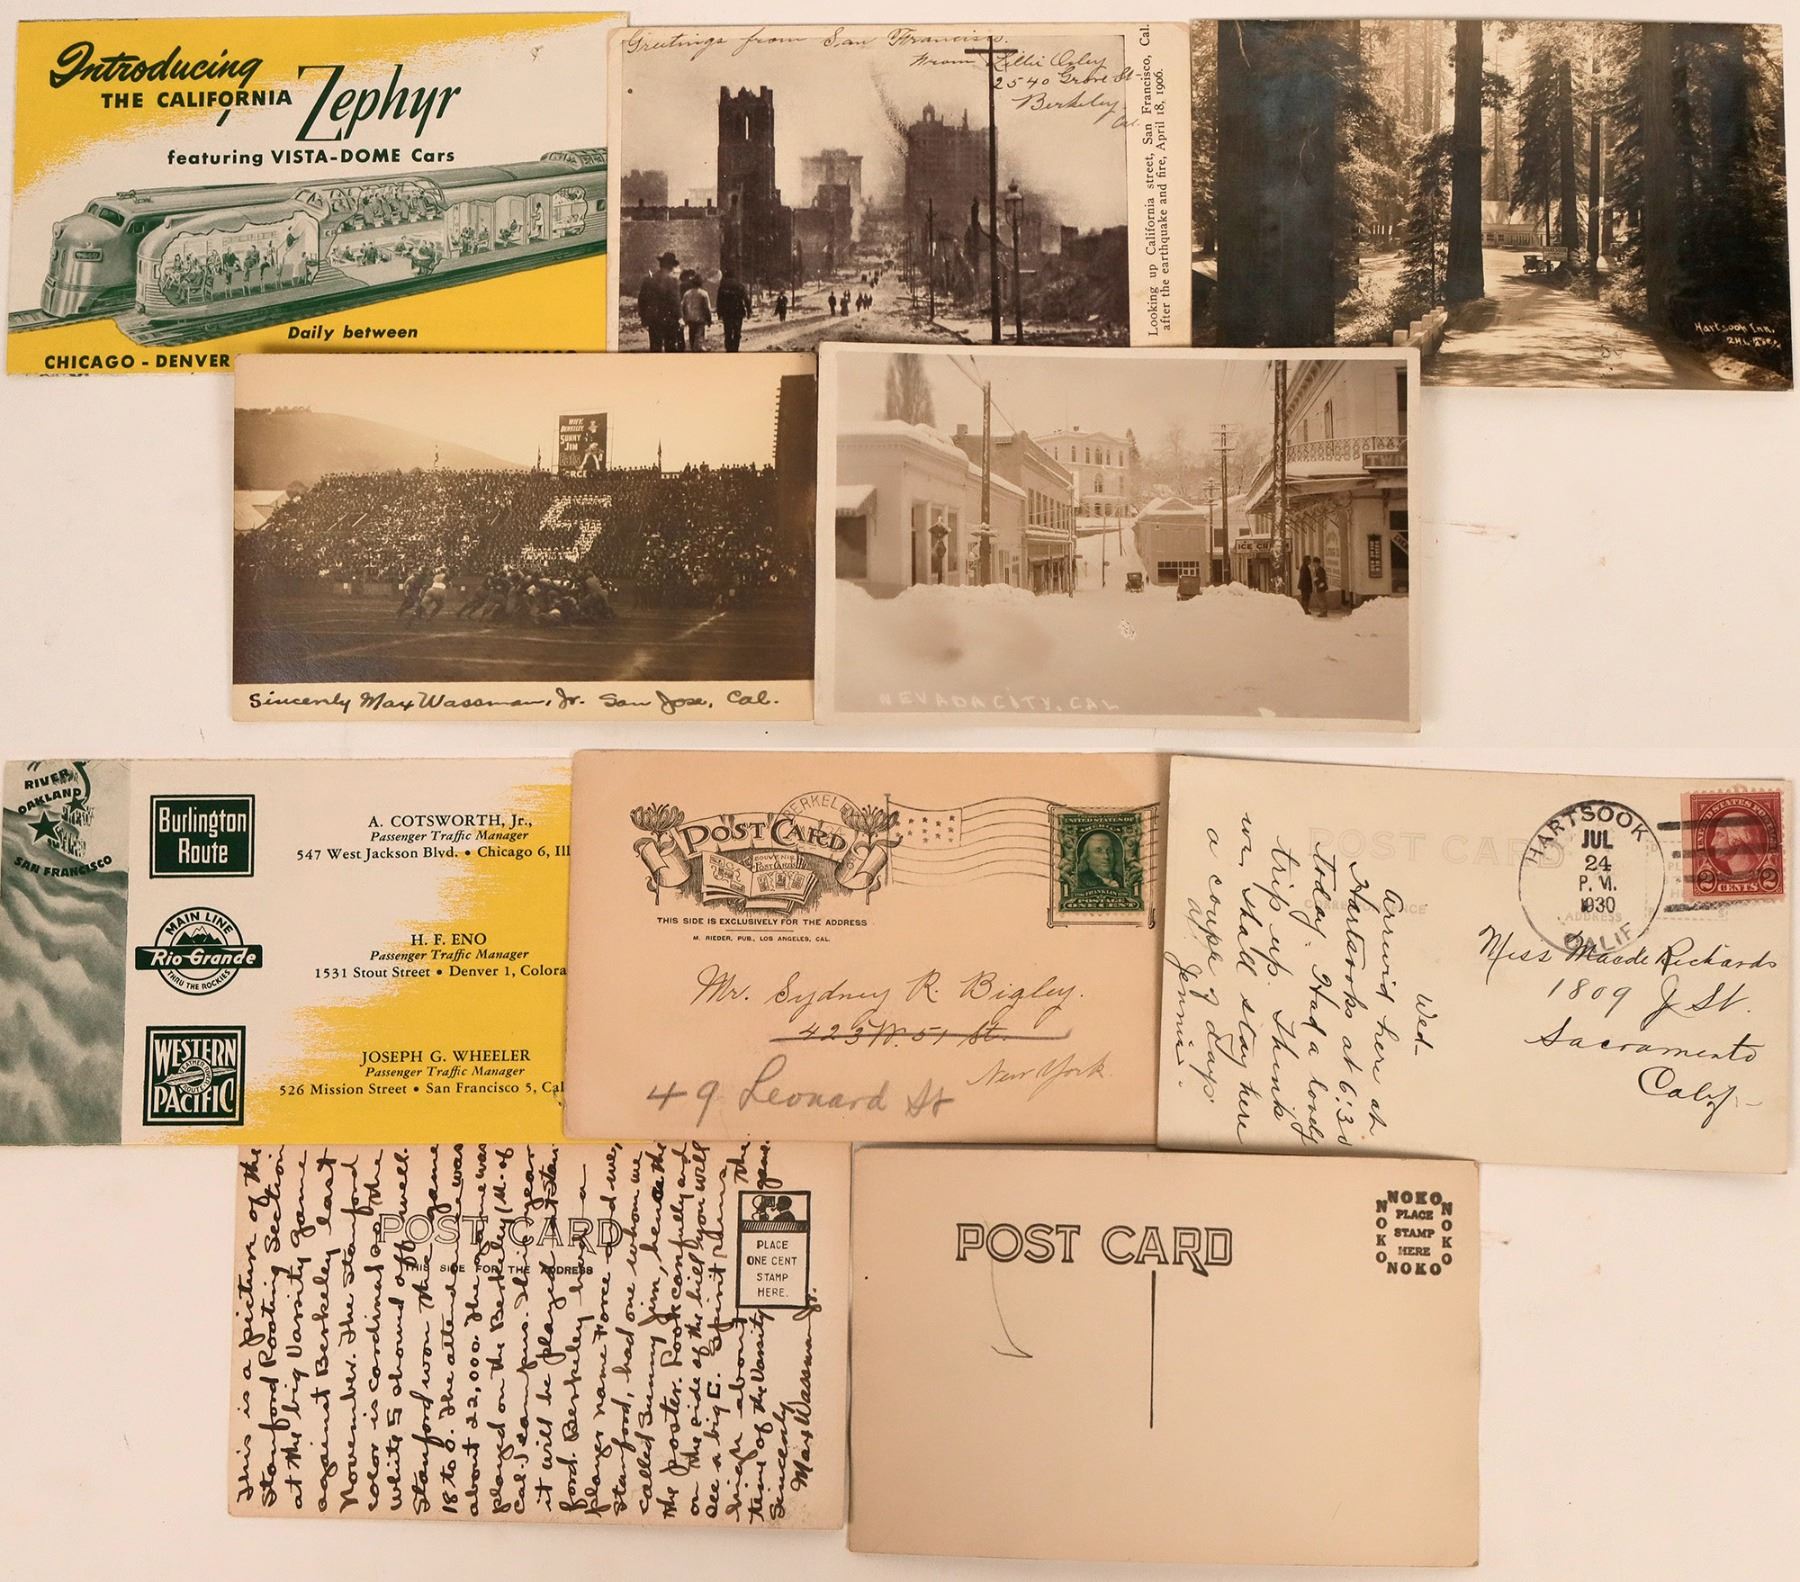 Introducing
THE CALIFORNIA
Zephyr
featuring VISTA-DOME Cars
Daily between
CHICAGO - DENVER
Greetings from San Francisco.
From Lillie
2540 Grove St
Berkeley
Cal.
Looking up California street, San Francisco, Cal.
after the earthquake and fire, April 18, 1906.
Hartsook Inn,
SUNNY
JIM
5
Sincerely Max Wassman, Jr. San Jose, Cal.
ICE
NEVADA CITY, CAL
RIVER
OAKLAND
SAN FRANCISCO
Burlington
Route
A. COTSWORTH, Jr.,
Passenger Traffic Manager
547 West Jackson Blvd. • Chicago 6, Ill
MAIN LINE
Rio Grande
THRU THE ROCKIES
H. F. ENO
Passenger Traffic Manager
1531 Stout Street • Denver 1, Colora
WESTERN
FEATHER RIVER
ROUTE
PACIFIC
JOSEPH G. WHEELER
Passenger Traffic Manager
526 Mission Street • San Francisco 5, Cal
BERKELEY
POST CARD
SOUVENIR
POST CARDS
THIS SIDE IS EXCLUSIVELY FOR THE ADDRESS
M. RIEDER, PUB., LOS ANGELES, CAL.
UNITED STATES OF
AMERICA
1 1
FRANKLIN
POSTAGE
ONE CENT
Mr. Sydney R. Bigley.
425 W. 51 St.
New York
49 Leonard St
POST CARD
CORRESPONDENCE
ADDRESS
Wed-
Arrived here at
Hartsooks at 6:30
today. Had a lovely
trip up. Think
we shall stay here
a couple of days.
Jennie.
HARTSOOK
JUL
24
P. M.
1930
CALIF
UNITED STATES POSTAGE
2 CENTS 2
Miss Maude Richards
1809 J St.
Sacramento
Calif-
POST CARD
THIS SIDE FOR THE ADDRESS
PLACE
ONE CENT
STAMP
HERE.
This is a picture of the
Stanford Rooting Section
at the big Varsity game
against Berkeley last
November. The Stanford
color is cardinal so the
white S showed off well.
Stanford won the game
18 to 0. The attendance was
about 22,000. The game was
played on the Berkeley (U. of
Cal.) campus. This year
it will be played at Stan-
ford. Berkeley had a
player name Force and we,
Stanford, had one whom we
called Sunny Jim, hence the
the poster. Look carefully and
on the side of the hill you will
see a big C. Spirit runs
high about the
time of the Varsity game.
Sincerely
Max Wassman Jr.
POST CARD
NOKO
NOKO
PLACE
STAMP
HERE
NOKO
NOKO